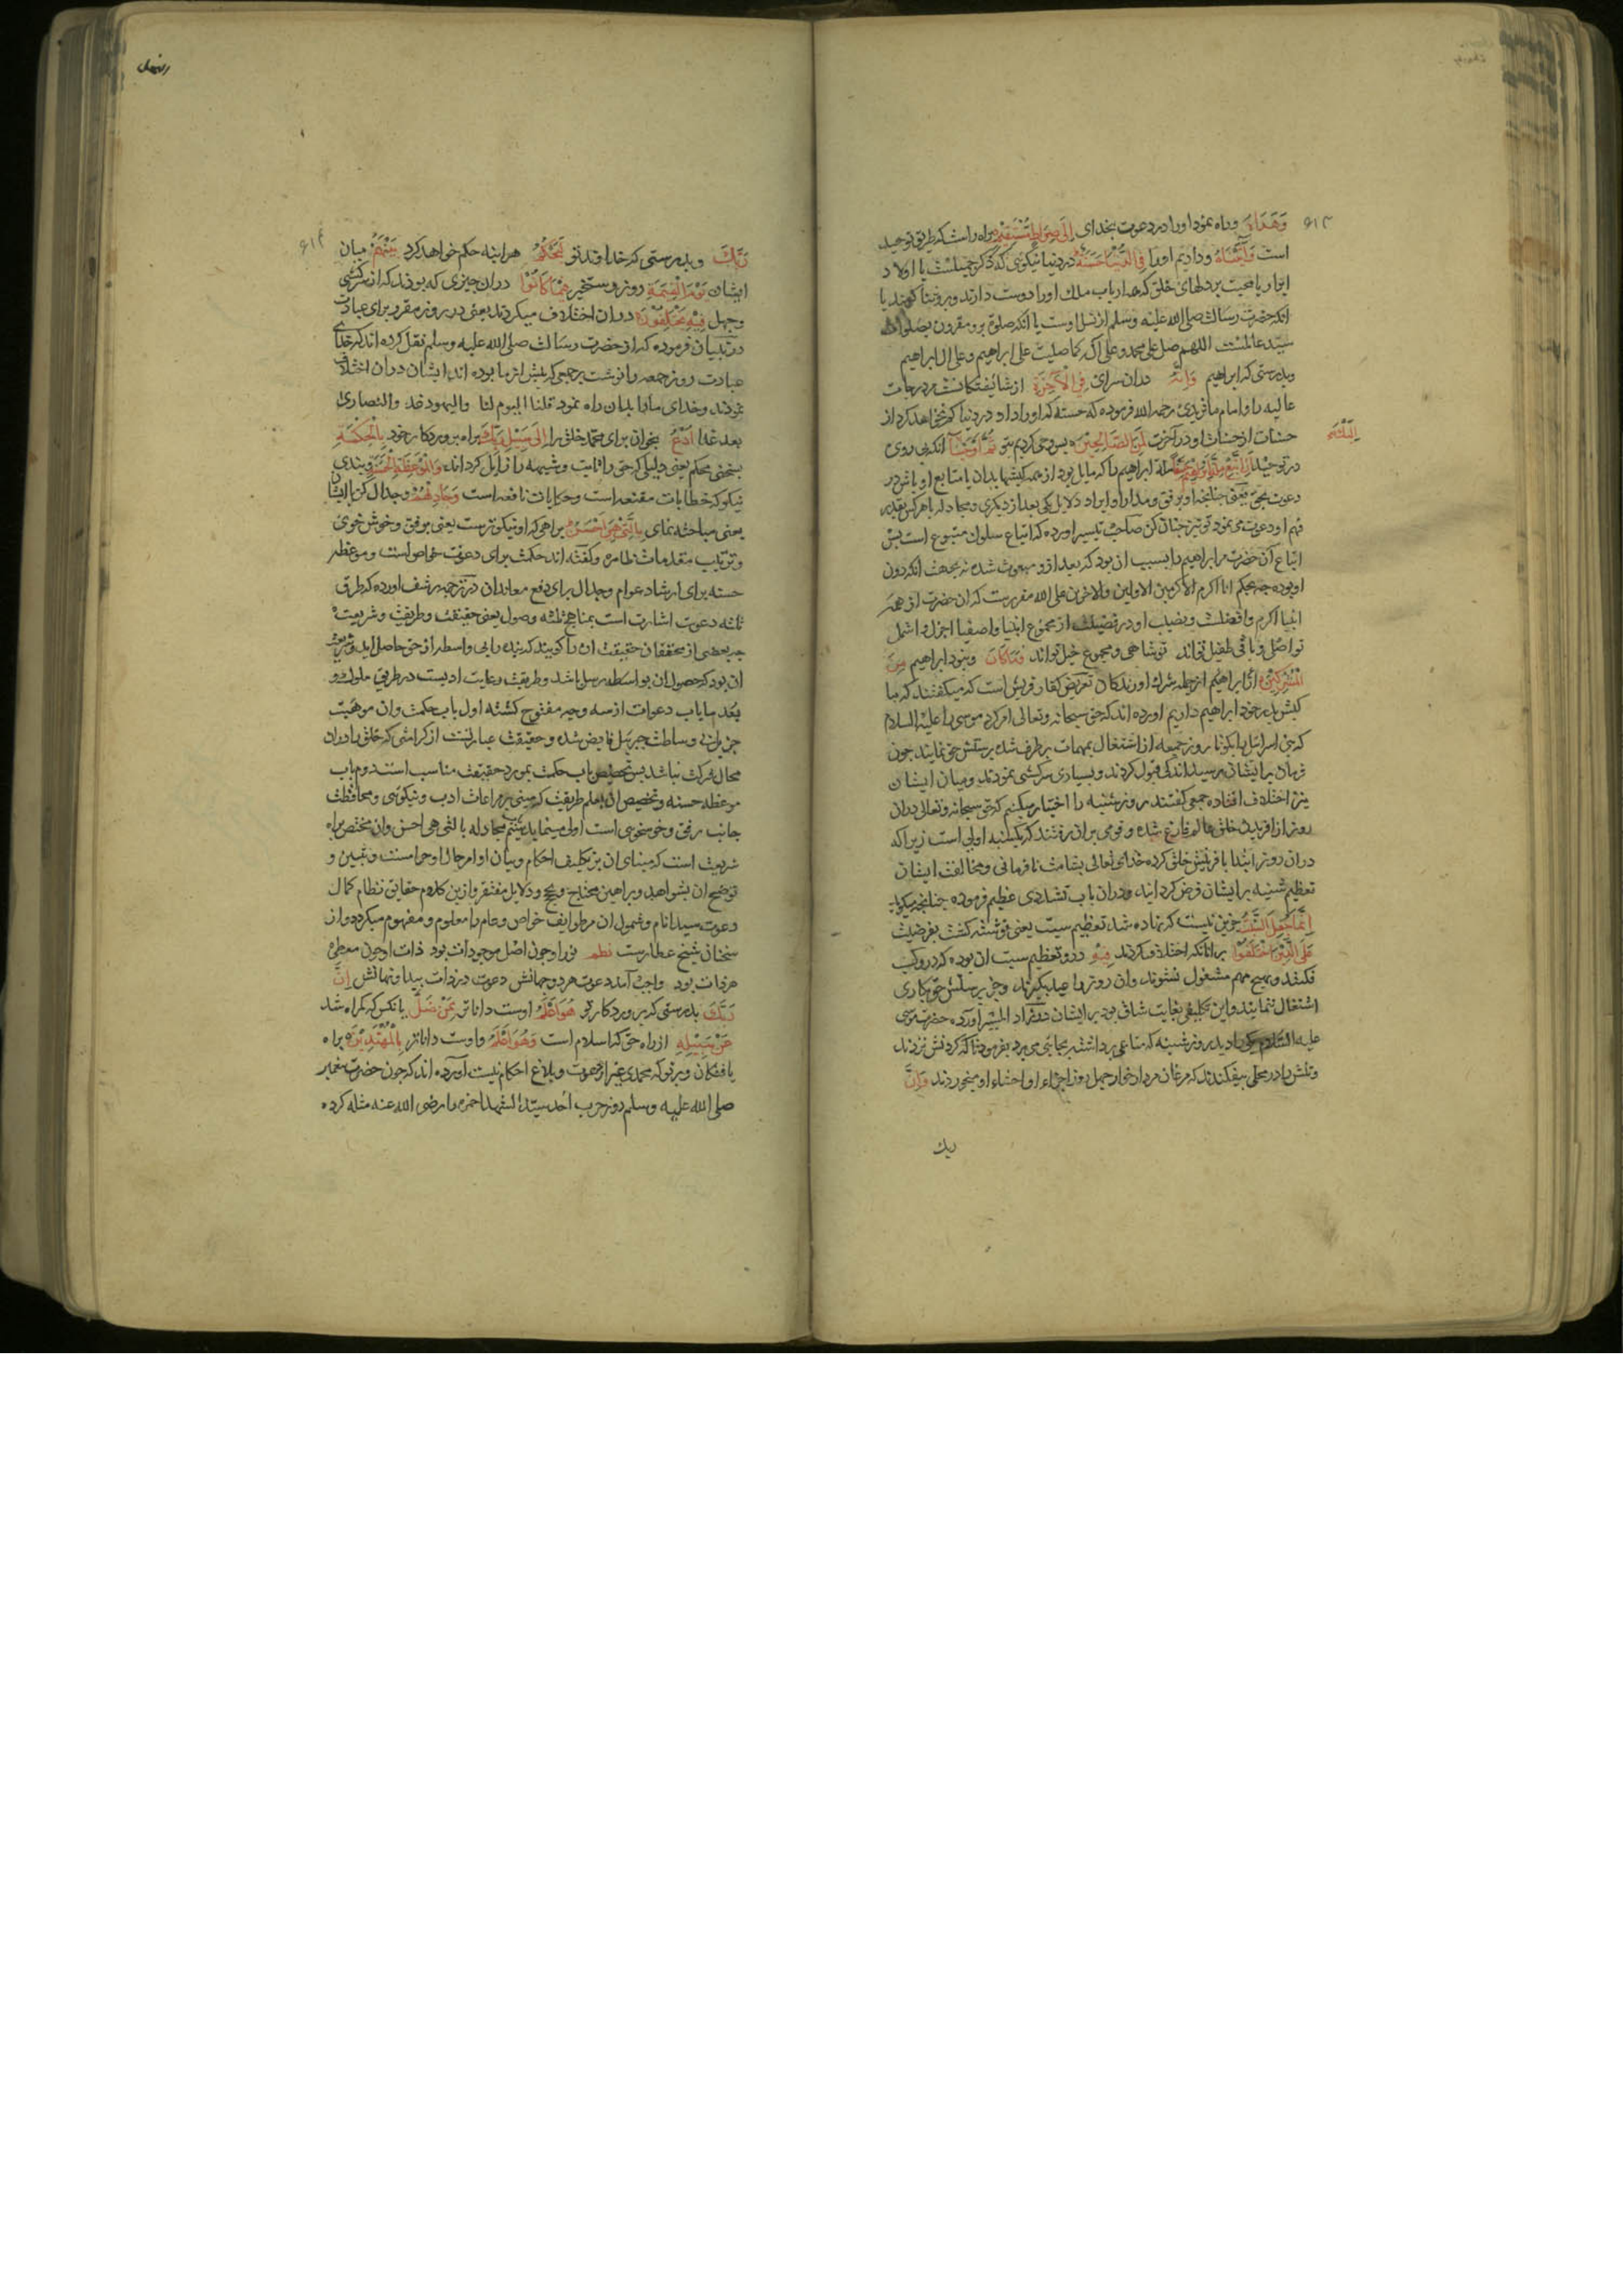 ۶۱۳
وَهَدَاهُ وراه نمود او را در دعوت بخدای إِلَى صِرَاطٍ مُسْتَقِيمٍ براه راست که طریق توحید
است وَآتَيْنَاهُ ودادیم او را فِي الدُّنْيَا حَسَنَةً در دنیا نیکوئی که ذکر جمیلست یا اولاد
ابرار یا محبت بر دلهای خلق که همه ارباب ملل او را دوست دارند و برو ثنا کویند یا
انکه حضرت رسالت صلی الله علیه وسلم از نسل اوست یا انکه صلوة برو مقرون بصلوات
سید عالمست اللهم صل علی محمد وعلی آله کما صلیت علی ابراهیم وعلی ال ابراهیم
وبدرستی که ابراهیم وَإِنَّهُ دران سرای فِي الْآخِرَةِ از شایستکانست در درجات
عالیه را و امام ماتریدی رحمه الله فرموده که حسنه که او را داد در دنیا کم نخواهد کرد از
حسنات از حسنات او در آخرت لَمِنَ الصَّالِحِينَ پس وحی کردیم بتو ثُمَّ أَوْحَيْنَا انکه پی روی
إِلَيْكَ
در توحید أَنِ اتَّبِعْ مِلَّةَ إِبْرَاهِيمَ حَنِيفًا ملة ابراهیم را که مایل بود از همه کیشها بدان یا متابع او باش در
دعوت بحق یعنی چنانچه او برفق و مدارا و ایراد دلایل یکی بعد از دیکری و مجادله با هرکس بقدر
فهم او دعوت می نمود تو نیز چنان کن صاحب تیسیر اورده که اتباع سلوک متبوع است پس
اتباع آن حضرت مر ابراهیم را بسبب ان بود که بعد از و مبعوث شده نه بجهت انکه دون
او بوده چه بحکم انا اکرم الاکرمین الاولین والاخرین علی الله مقررست که ان حضرت از همه
انبیا اکرم وافضلست ونصیب او در فضیلت از مجموع انبیا واصفیا اجزل واشمل
تو اصل و باقی طفیل تواند تو شاهی و مجموع خیل تواند وَمَا كَانَ ونبود ابراهیم مِنَ
الْمُشْرِكِينَ ابراهیم از جمله شرک اورندکان تعریض کفار قریش است که میکفتند که ما
کیش پدر خود ابراهیم داریم اورده اند که حق سبحانه وتعالی امر کرد موسی را علیه السلام
که بنی اسرائیل را بکو تا روز جمعه از اشتغال بمهمات برطرف شده پرستش حق نمایند چون
فرمان بر ایشان رسید اندکی قبول کردند و بسیاری سرکشی نمودند ومیان ایشان
نیز اختلاف افتاده جمعی کفتند روز شنبه را اختیار میکنیم که حق سبحانه وتعالی دران
روز از افرینش خلق عالم فارغ شده و قومی بران رفتند که یکشنبه اولی است زیرا که
دران روز ابتدا بآفرینش خلق کرده خدای تعالی بشامت نافرمانی ومخالفت ایشان
تعظیم شنبه بر ایشان فرض کردانید ودران باب تشددی عظیم فرموده چنانچه میکوید
إِنَّمَا جُعِلَ السَّبْتُ جزین نیست که نهاده شد تعظیم سبت یعنی نوشته کشت بفرضیت
عَلَى الَّذِينَ اخْتَلَفُوا بر انانکه اختلاف کردند فِيهِ در و تعظیم سبت ان بوده که در و کسب
نکنند وبهیچ مهم مشغول نشوند وان روز را عید بکیرند وجز پرستش حق بکاری
اشتغال ننمایند و این تکلیفی بغایت شاق بود بر ایشان در زاد المسیر اورده حضرت موسی
علیه السلام یکی را دید روز شنبه که متاعی برداشته بجایی می برد بفرمود تا کردنش بزدند
وتنش را در محلی بیفکندند که مرغان مردار خوار چهل روز اجزاء او احشاء او میخوردند وَإِنَّ
ربك
النحل
۶۱۴
رَبَّكَ وبدرستی که خداوند تو لَيَحْكُمُ هراینه حکم خواهد کرد بَيْنَهُمْ میان
ایشان يَوْمَ الْقِيَمَةِ روز رستخیز فِيمَا كَانُوا دران چیزی که بودند که از سرکشی
وجهل فِيهِ يَخْتَلِفُونَ دران اختلاف میکردند یعنی در روز مقرر برای عبادت
در تبیان فرموده که از حضرت رسالت صلی الله علیه وسلم نقل کرده اند که خدای
عبادت روز جمعه را نوشت بر جمعی که پیش از ما بوده اند ایشان دران اختلاف
نمودند وخدای ما را بدان راه نمود قلنا الیوم لنا والیهود غد والنصاری
بعد غد ادْعُ بخوان برای محمد خلق را إِلَى سَبِيلِ رَبِّكَ براه پروردکار خود بِالْحِكْمَةِ
بسخنی محکم یعنی دلیلی که حق را ثابت وشبهه را زایل کرداند وَالْمَوْعِظَةِ الْحَسَنَةِ وپندی
نیکو که خطابات مقنعه است وحکایات نافعه است وَجَادِلْهُمْ وجدال کن با ایشان
یعنی مباحثه نمای بِالَّتِي هِيَ أَحْسَنُ براهی که او نیکوترست یعنی برفق وخوش خوی
وترتیب مقدمات ظاهره وکفته اند حکمت برای دعوت خواص است وموعظه
حسنه برای ارشاد عوام وجدال برای دفع معاندان در ترجمه رشف اورده که طرق
ثلثه دعوت اشارت است بمناهج ثلثه وصول یعنی حقیقت وطریقت وشریعت
چه بعضی از محققان حقیقت ان را کویند که بنده را بی واسطه از حق حاصل اید وشریعت
ان بود که حصول ان بواسطه رسل باشد وطریقت رعایت ادبست در طریق سلوک و
بعد ما باب دعوات از سه وجه مفتوح کشته اول باب حکمت وان موهبت
جزیل بی وساطت جبرئیل فایض شده وحقیقت عبارتست از کرامتی که خلق را دران
مجال شرکت نباشد پس تخصیص باب حکمت بمورد حقیقت مناسب است دوم باب
موعظه حسنه وتخصیص ان باهل طریقت که مبنی بر مراعات ادب ونیکویی ومحافظت
جانب رفق وخوشخویی است اولی مینماید سیم مجادله بالتی هی احسن وان مختص براه
شریعت است که مبنای ان بر تکلیف احکام وبیان اوامر حلال وحرامست وتبیین و
توضیح ان بشواهد وبراهین محتاج وبحجج ودلایل مفتقر وازین کلام حقایق نظام کمال
دعوت سید انام وشمول ان مر طوایف خواص وعام را معلوم ومفهوم میکردد واز
سخنان شیخ عطارست نظم نور او چون اصل موجودات بود ذات او چون معطی
هر ذات بود واجب آمد دعوت هر دو جهانش دعوت ذرات پیدا ونهانش إِنَّ
رَبَّكَ بدرستی که پروردکار تو هُوَ أَعْلَمُ اوست داناتر بِمَنْ ضَلَّ بانکس که کمراه شد
عَنْ سَبِيلِهِ از راه حق که اسلام است وَهُوَ أَعْلَمُ واوست داناتر بِالْمُهْتَدِينَ براه
یافتکان وبر تو که محمدی غیر از دعوت وبلاغ احکام نیست آورده اند که چون حضرت پیغمبر
صلی الله علیه وسلم روز حرب احد سید الشهدا حمزه را رضی الله عنه مثله کرده